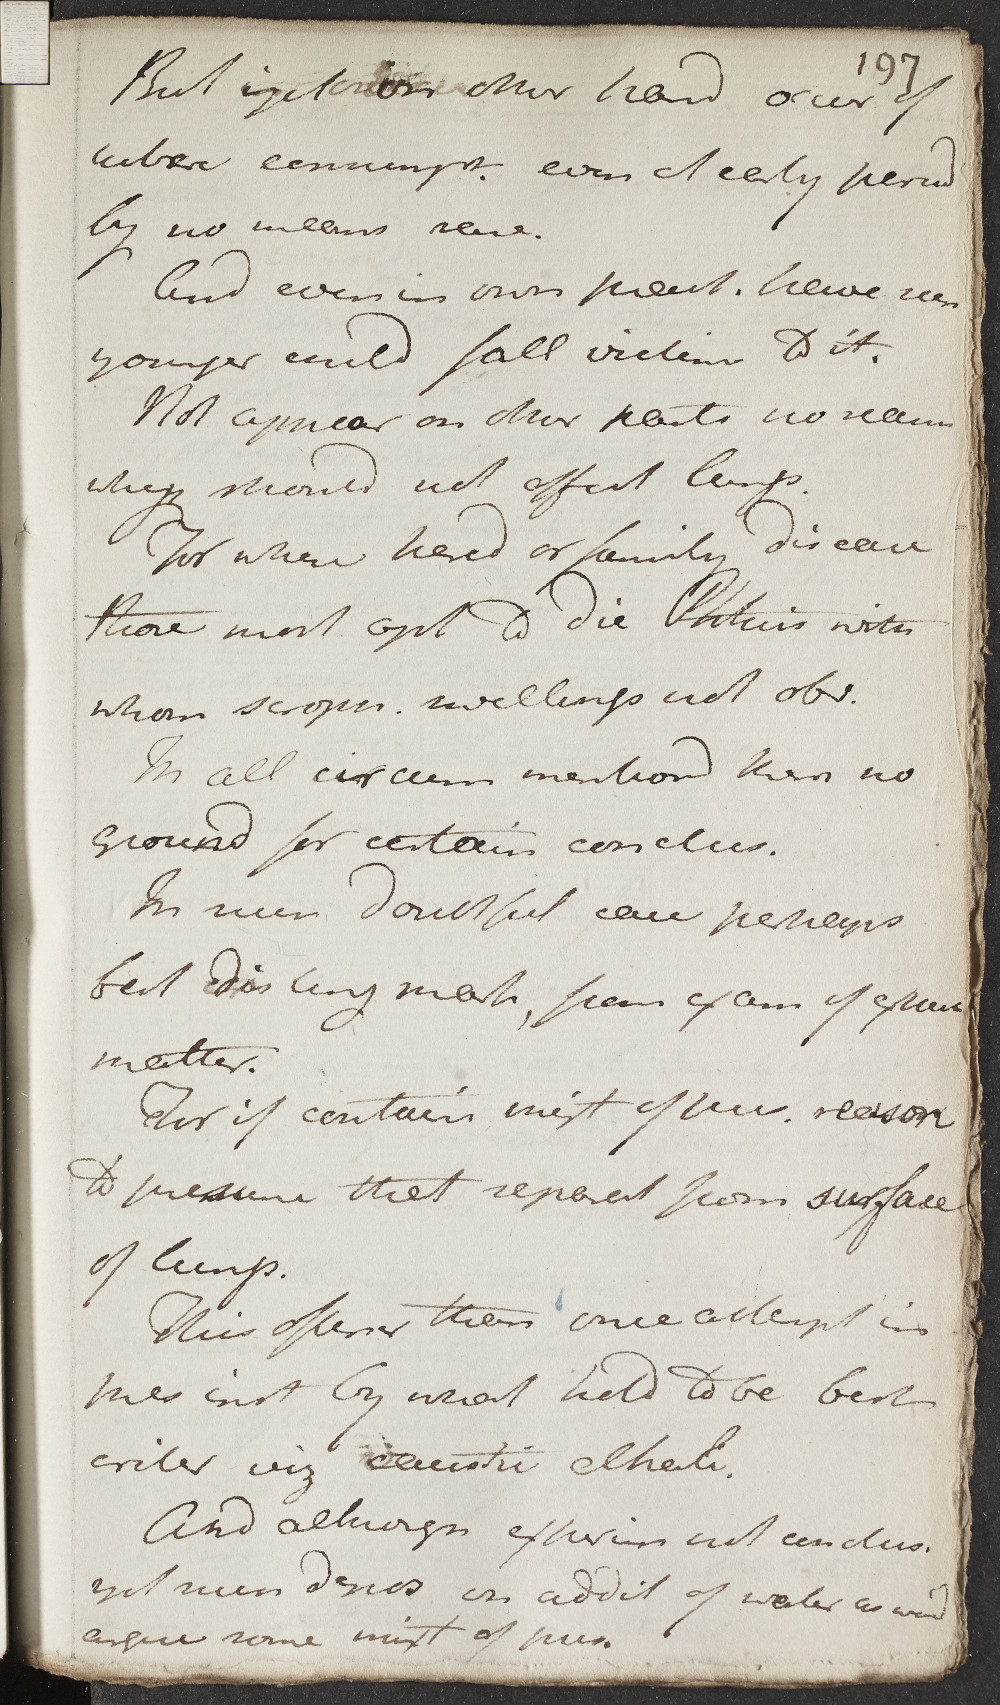 197
But yet on other hand occur of
tuberc consumpt. even at early period
by no means rare.
And even in own pract. have seen
younger child fall victim to it.
Not appear on other parts no reason
why should not affect lungs.
For when hered or family disease
those most apt to die Phthisis with
whom scroph. swellings not obs.
In all circum mentiond then no
ground for certain conclus.
In such doubtful case perhaps
best disting mark, from exam of expect
matter.
For if contain mixt of pus. reason
to presume that separat from surface
of lungs.
This often than once attempt in
pres inst by what held to be best
criter viz caustic alkali.
And although experim not conclus.
yet such depos on addit of water as would
argue some mixt of pus.